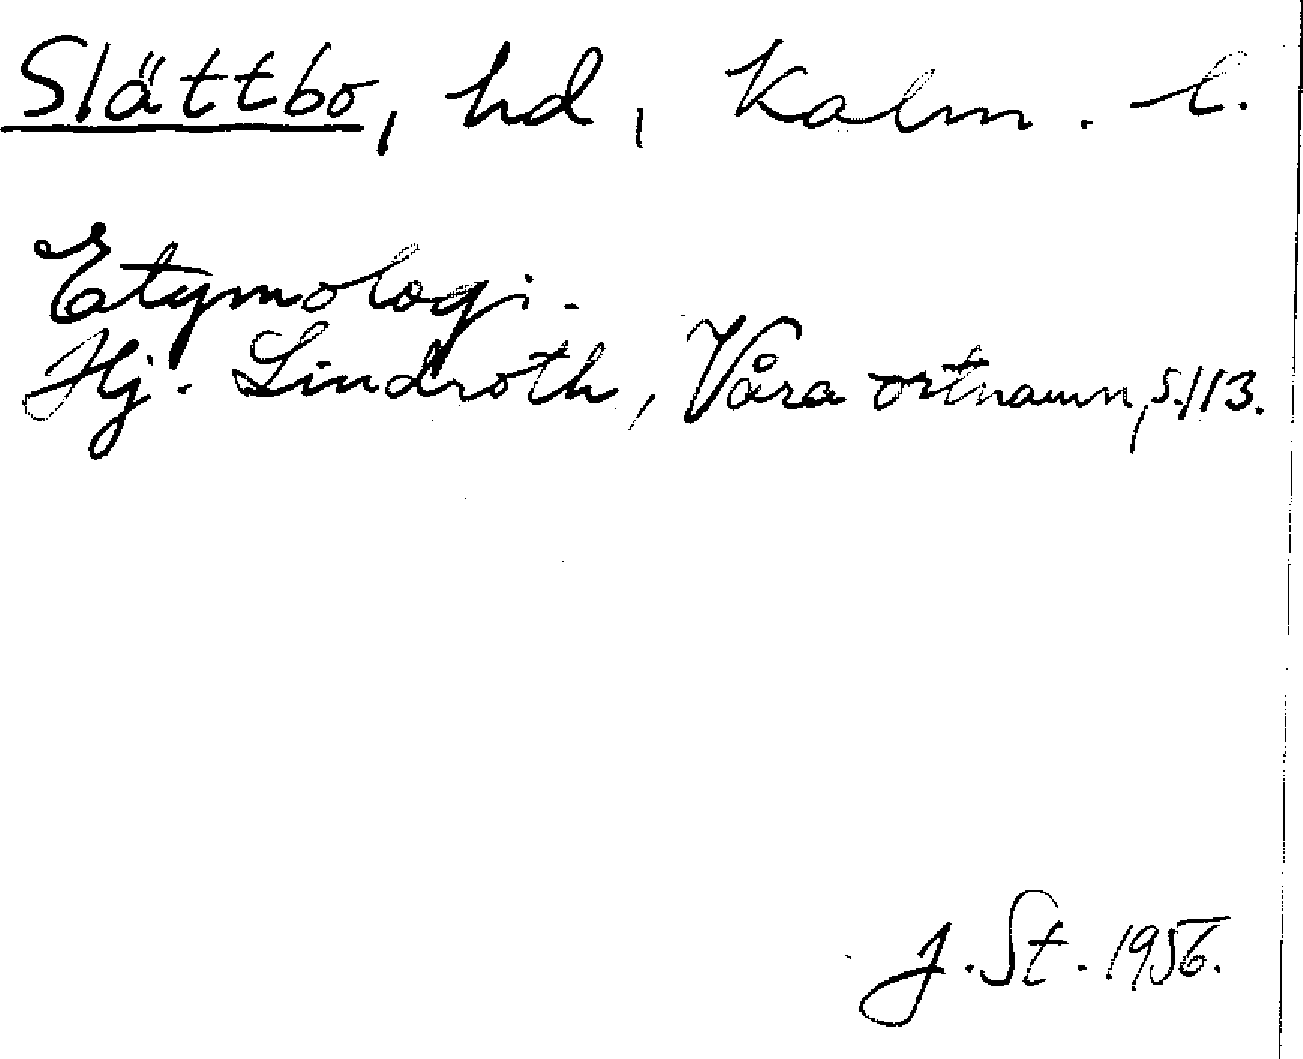 Slättbo, hd, Kalm. l.
Etymologi.
Hj. Lindroth, Våra ortnamn, s. 113.
J. St. 1956.